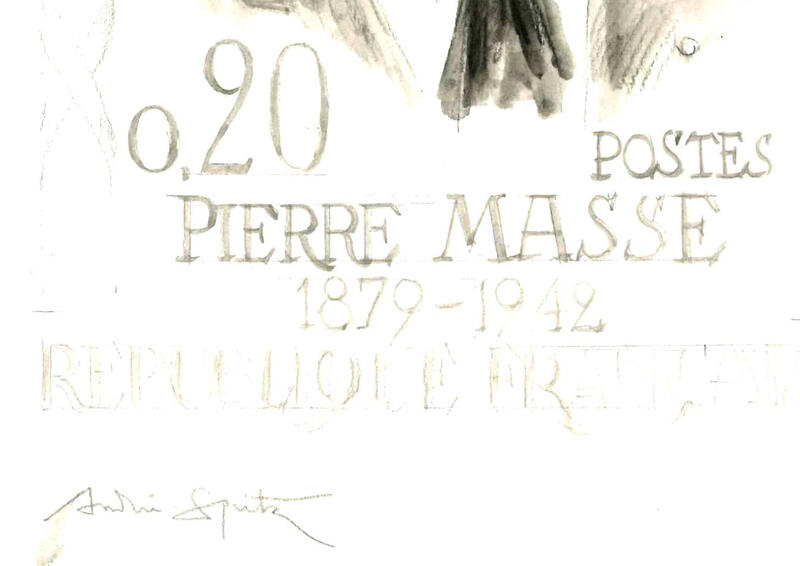 0,20
POSTES
PIERRE MASSE
1879-1942
REPUBLIQUE FRANÇAI
André Spitz